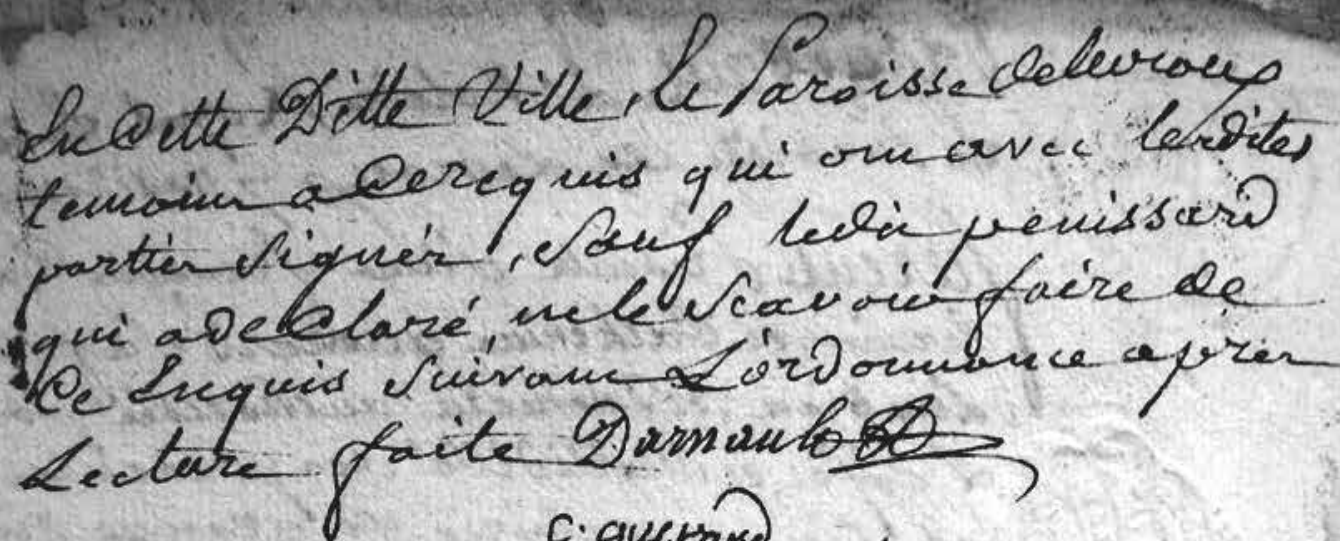 En cette Ditte Ville, & Paroisse de levroux
temoins a ce requis qui ont avec lesdites
parties signér, sauf ledit penissard
qui a declaré, ne le scavoir faire de
ce Enquis suivant L'ordonnance aprèr
Lecture faite Darnault